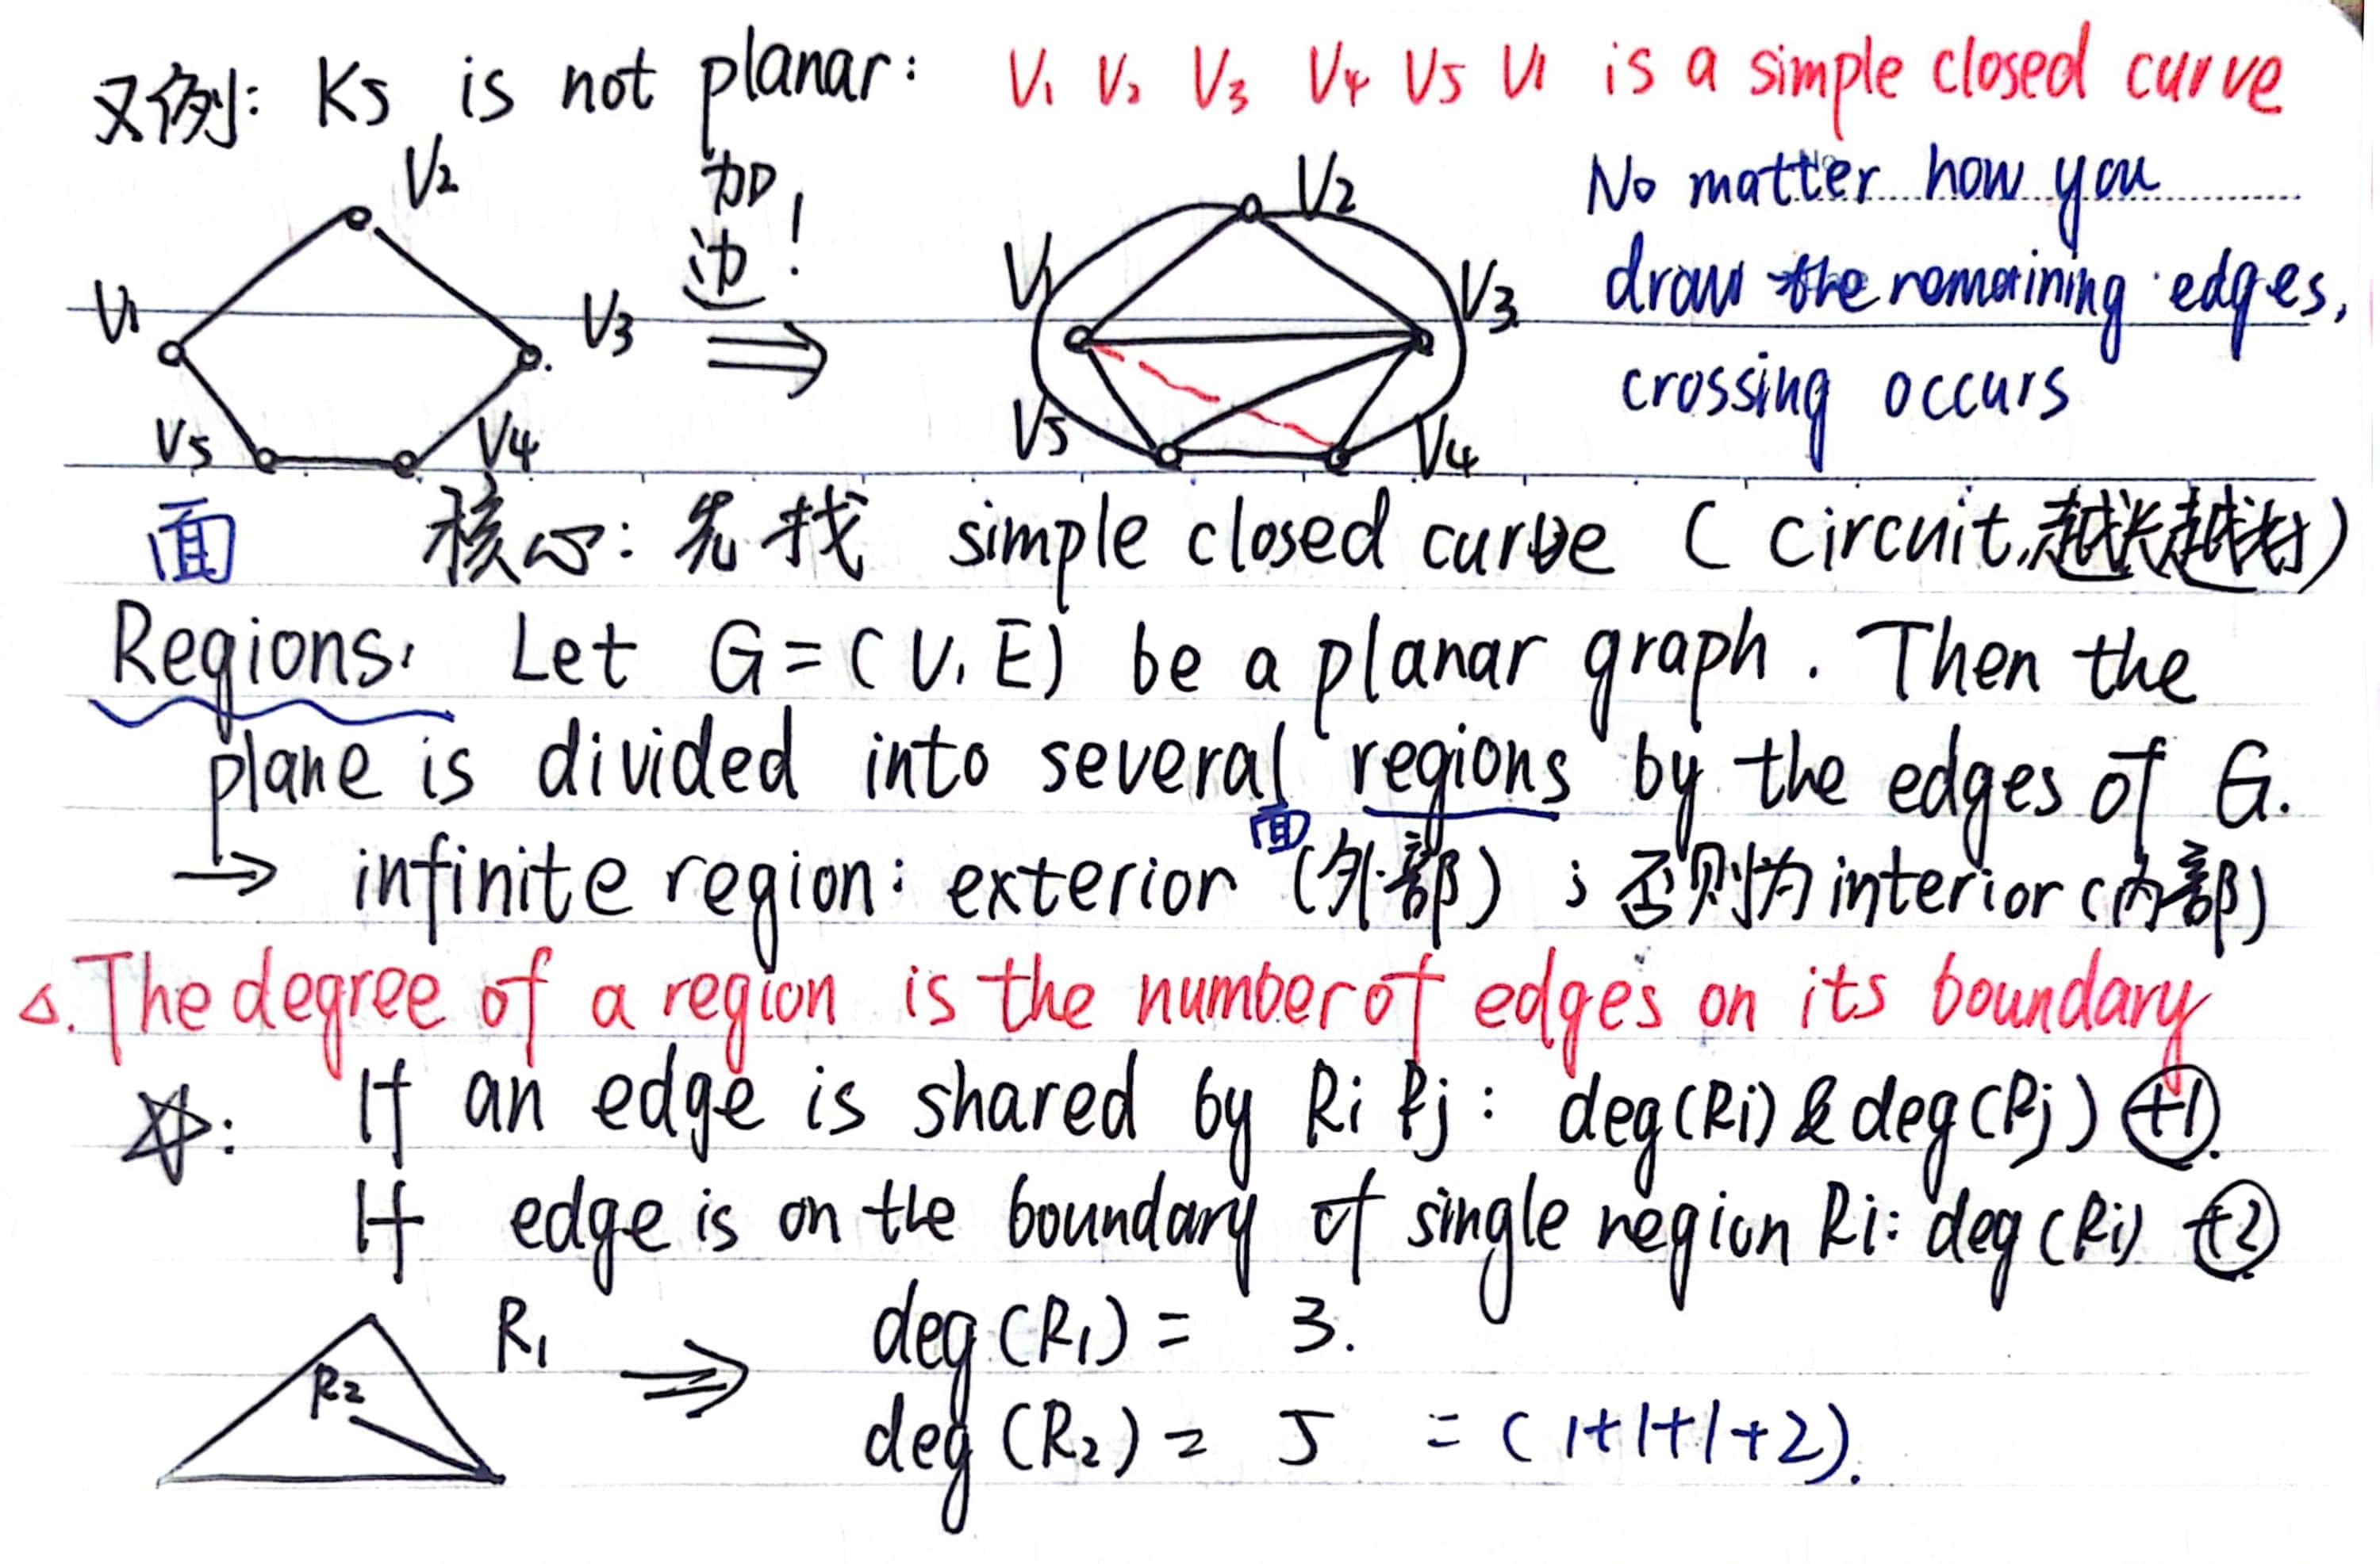 又例: K5 is not planar: V1 V2 V3 V4 V5 V1 is a simple closed curve
加边!
No matter how you
draw the remaining edges,
crossing occurs
V2
V1
V3
V5
V4
V2
V1
V3
V5
V4
面 核心: 先找 simple closed curve (circuit,越长越好)
Regions: Let G=(V,E) be a planar graph. Then the
plane is divided into several regions by the edges of G.
面
→ infinite region: exterior (外部); 否则为interior (内部)
△.The degree of a region is the number of edges on its boundary
☆: If an edge is shared by Ri Rj: deg(Ri) & deg(Rj) +1.
If edge is on the boundary of single region Ri: deg(Ri) +2
R1 ⇒ deg(R1) = 3.
R2
deg(R2) = 5 = (1+1+1+2).